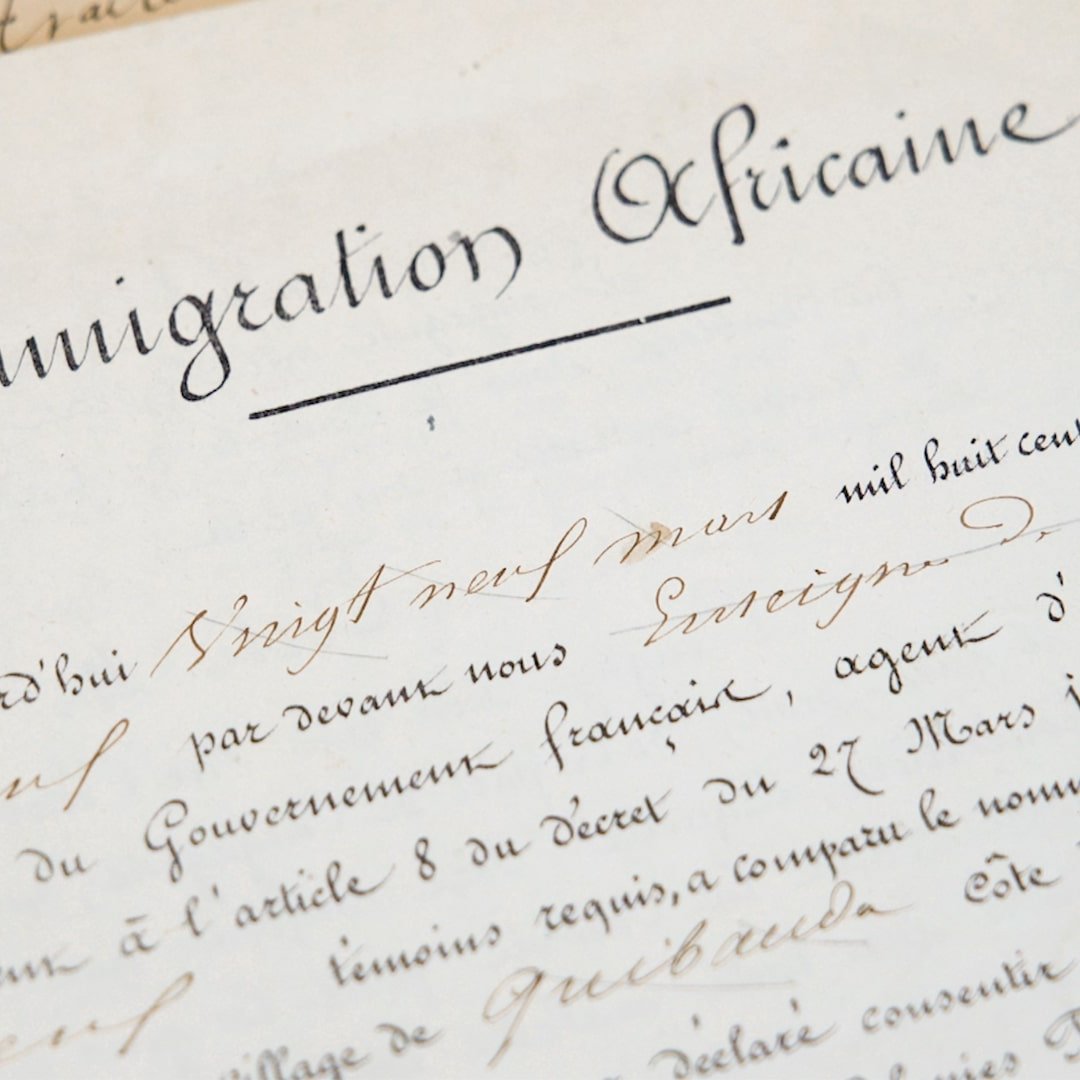 mmigration Africaine
rd'hui Vingt neuf mars mil huit cent
par devant nous Enseigne D
du Gouvernement français, agent d'
à l'article 8 du décret du 27 Mars
témoins requis, a comparu le nomm
village de Quibanda Côte
déclaré consentir